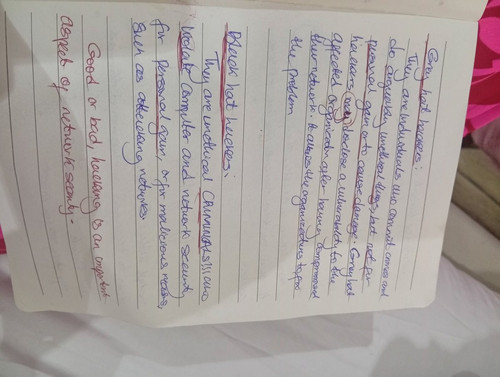 Grey hat hackers:
They are individuals who commit crimes and
do arguably unethical things, but not for
personal gain or to cause damage. Grey hat
hackers may disclose a vulnerability to the
affected organization after having compromised
their network. It allows the organization to fix
the problem
Black hat hackers:
They are unethical CRIMINALS!!! who
violate computer and network security
for personal gain, or for malicious reasons,
such as attacking networks.
Good or bad, hacking is an important
aspect of network security.